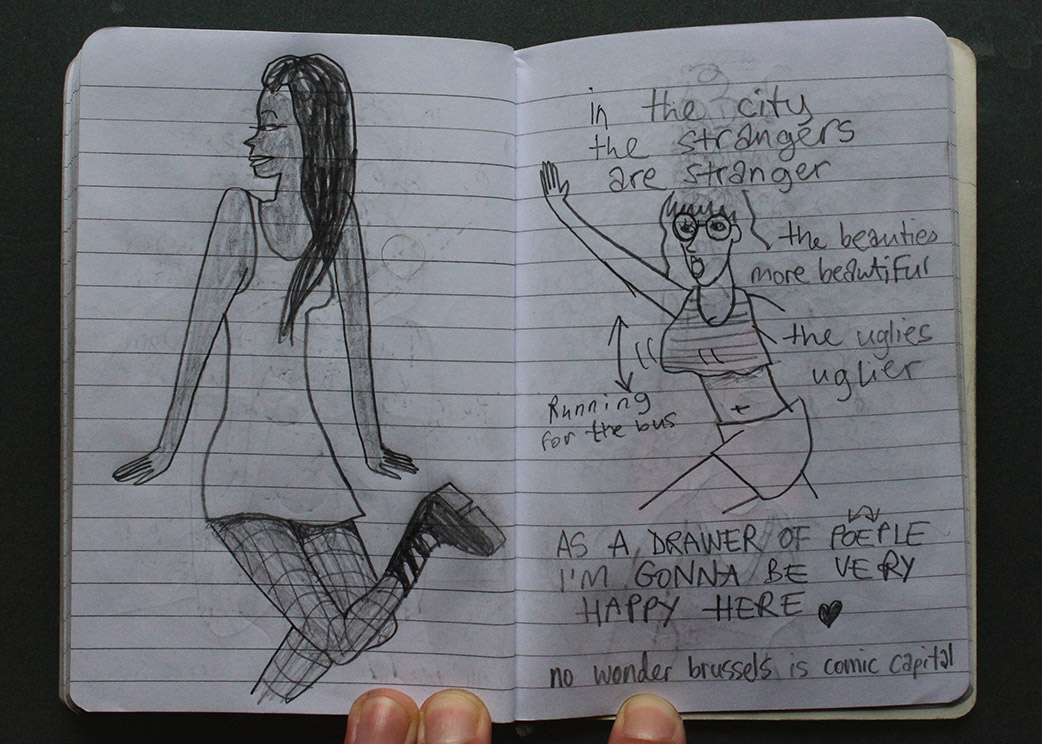 in the city
the strangers
are stranger
the beauties
more beautiful
the uglies
uglier
Running
for the bus
AS A DRAWER OF POEPLE
I'M GONNA BE VERY
HAPPY HERE ♥
no wonder brussels is comic capital